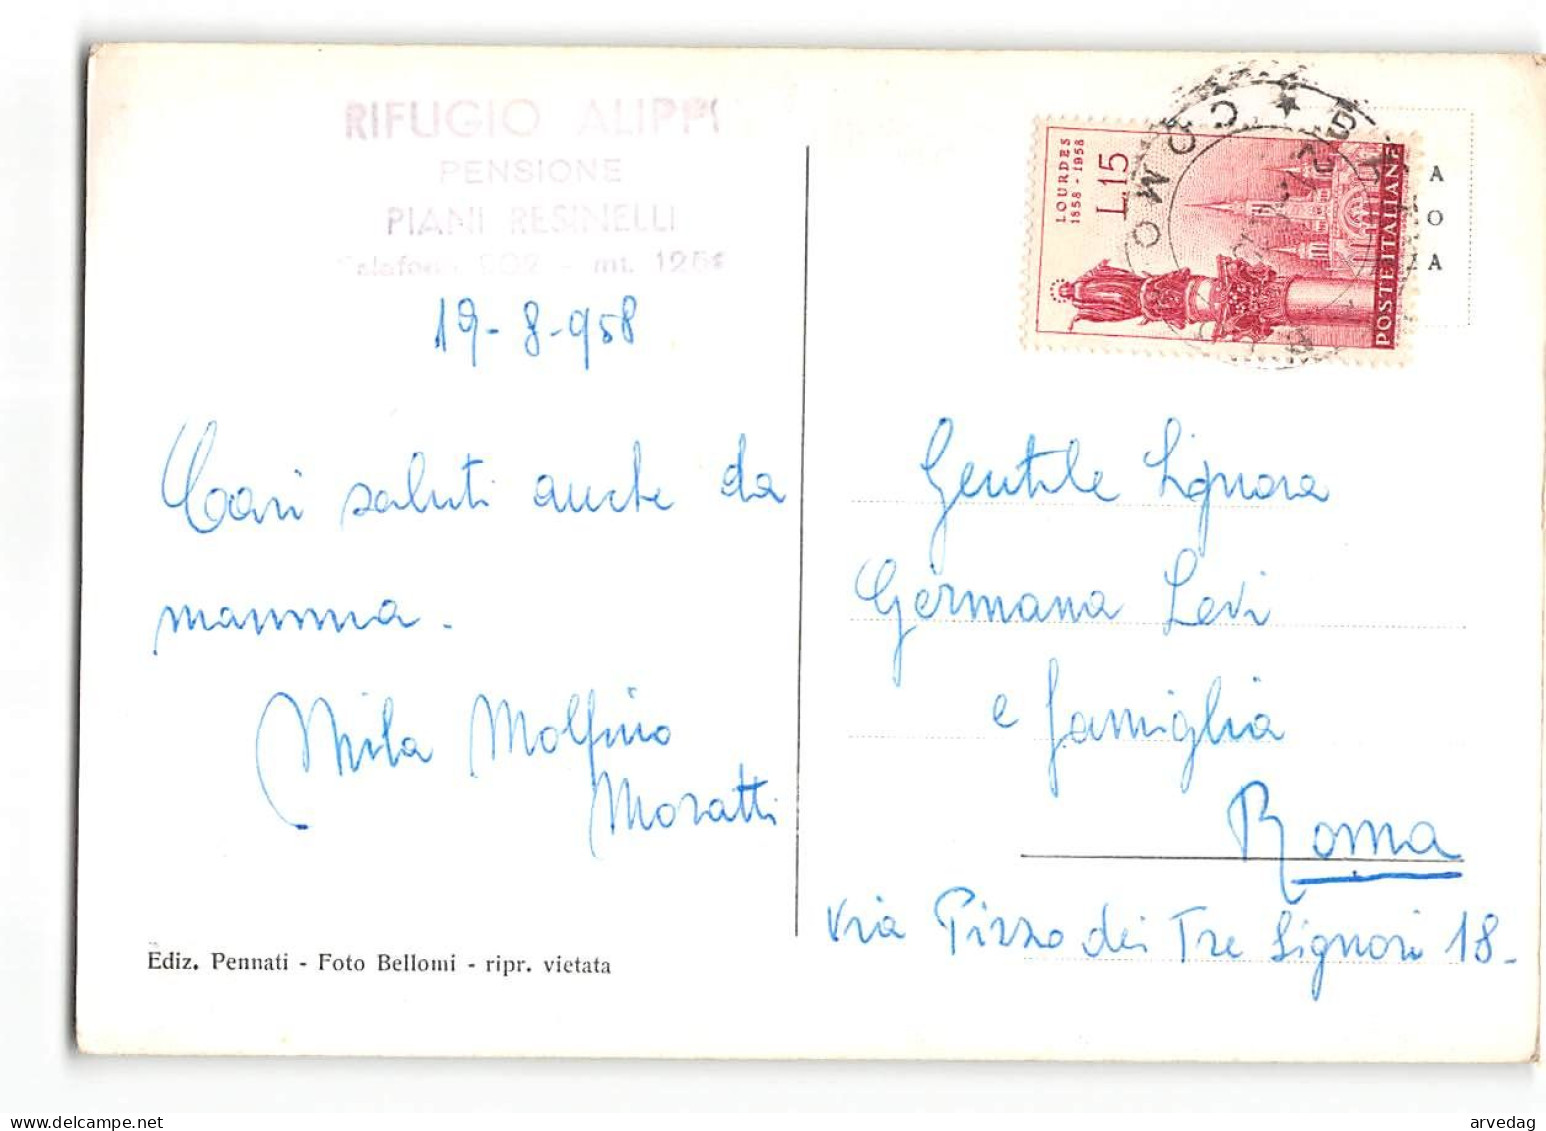 RIFUGIO ALIPPI
PENSIONE
PIANI RESINELLI
Telefono 902 - mt. 125
19-8-958
Cari saluti anche da
mamma.
Mila Molfino
Moratti
Ediz. Pennati - Foto Bellomi - ripr. vietata
LOURDES
1858 - 1958
L.15
POSTE ITALIANE
COMO
A
O
A
Gentile Signora
Germana Levi
e famiglia
Roma
Via Pizzo dei Tre Signori 18-
arvedag